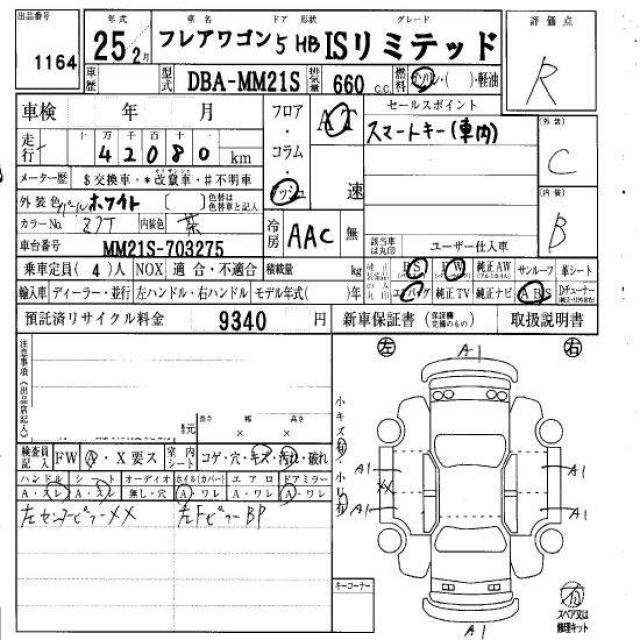 出品番号 年式 車名 ドア 形状 グレード 評価点
1164 25 2月 フレアワゴン 5 HB ISリミテッド R
車歴 型式 DBA-MM21S 排気量 660 c.c. 燃料 ガソリン・( )・軽油
車検 年 月 フロア・コラム・ AT セールスポイント (外装)
走行 十 万 千 百 十 一 スマートキー(車内) C
4 2 0 8 0 km
メーター歴 $交換車・*改竄車・#不明車 速 (内装)
外装色 パールホワイト [ ] 色替は色替車と記入 B
カラーNo. Z7T 内装色 茶 冷房 AAC 無
車台番号 MM21S-703275 該当車は丸印 ユーザー仕入車
乗車定員 ( 4 ) 人 NOX 適合・不適合 積載量 kg PS PW 純正AW サンルーフ 革シート
輸入車 ディーラー・並行 左ハンドル・右ハンドル モデル年式( )年 エアバッグ 純正TV 純正ナビ ABS Dチューナー
預託済リサイクル料金 9340 円 新車保証書 (保証機 究極のもの) 取扱説明書
注意事項(出品店記入) 左 A1 右
長さ 幅 高さ
× ×
小キズ有・小凹有
検査員記入 FW A・X要ス 室内シート コゲ・穴・キズ・汚れ・破れ
ハンドル シート オーディオ ホイル(カバー) エアロ ドアミラー
A・スレ A・スレ 無し・穴 A・ワレ A・ワレ A・ワレ
左センターピラーXX 左FピラーBP
A1 A1
XX
A1 A1
キーコーナー
スペア又は修理キット
A1